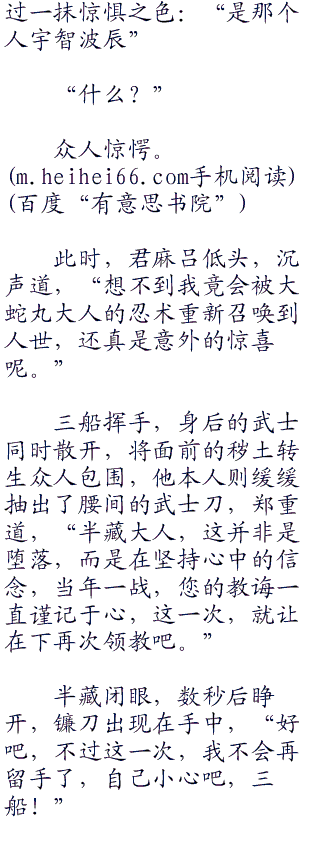 过一抹惊惧之色：“是那个
人宇智波辰”
“什么？”
众人惊愕。
(m.heihei66.com手机阅读)
(百度“有意思书院”)
此时，君麻吕低头，沉
声道，“想不到我竟会被大
蛇丸大人的忍术重新召唤到
人世，还真是意外的惊喜
呢。”
三船挥手，身后的武士
同时散开，将面前的秽土转
生众人包围，他本人则缓缓
抽出了腰间的武士刀，郑重
道，“半藏大人，这并非是
堕落，而是在坚持心中的信
念，当年一战，您的教诲一
直谨记于心，这一次，就让
在下再次领教吧。”
半藏闭眼，数秒后睁
开，镰刀出现在手中，“好
吧，不过这一次，我不会再
留手了，自己小心吧，三
船！”